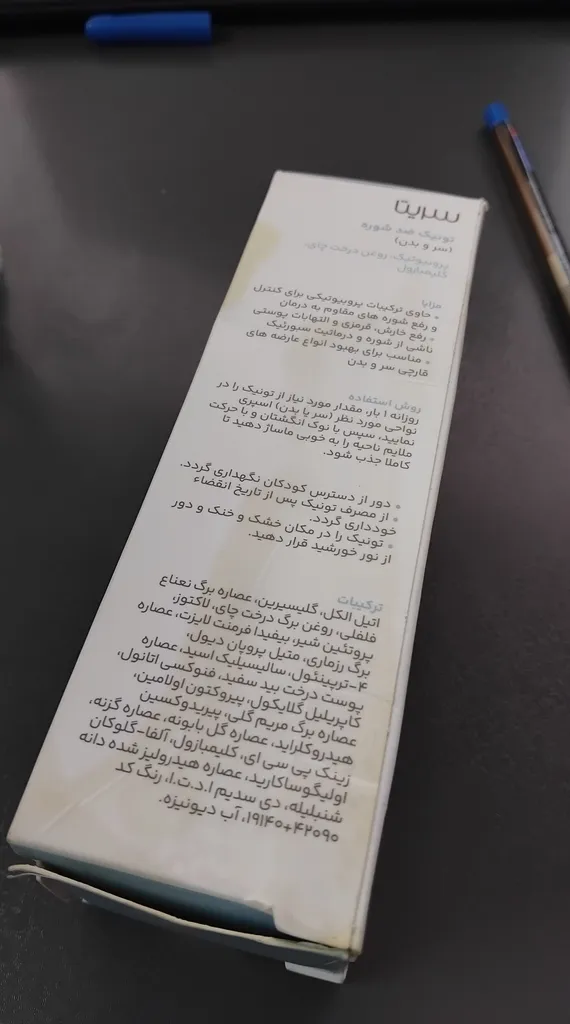 سریتا
تونیک ضد شوره
(سر و بدن)
پروبیوتیک، روغن درخت چای،
کلیمبازول
مزایا
• حاوی ترکیبات پروبیوتیکی برای کنترل
و رفع شوره های مقاوم به درمان
• رفع خارش، قرمزی و التهابات پوستی
ناشی از شوره و درماتیت سبورئیک
• مناسب برای بهبود انواع عارضه های
قارچی سر و بدن
روش استفاده
روزانه ۱ بار، مقدار مورد نیاز از تونیک را در
نواحی مورد نظر (سر یا بدن) اسپری
نمایید، سپس با نوک انگشتان و با حرکت
ملایم ناحیه را به خوبی ماساژ دهید تا
کاملا جذب شود.
• دور از دسترس کودکان نگهداری گردد.
• از مصرف تونیک پس از تاریخ انقضاء
خودداری گردد.
• تونیک را در مکان خشک و خنک و دور
از نور خورشید قرار دهید.
ترکیبات
اتیل الکل، گلیسیرین، عصاره برگ نعناع
فلفلی، روغن برگ درخت چای، لاکتوز،
پروتئین شیر، بیفیدا فرمنت لایزت، عصاره
برگ رزماری، متیل پروپان دیول،
۴-ترپینئول، سالیسیلیک اسید، عصاره
پوست درخت بید سفید، فنوکسی اتانول،
کاپریلیل گلایکول، پیروکتون اولامین،
عصاره برگ مریم گلی، پیریدوکسین
هیدروکلراید، عصاره گل بابونه، عصاره گزنه،
زینک پی سی ای، کلیمبازول، آلفا-گلوکان
اولیگوساکارید، عصاره هیدرولیز شده دانه
شنبلیله، دی سدیم ا.د.ت.ا، رنگ کد
۱۹۱۴۰+۴۲۰۹۰، آب دیونیزه.